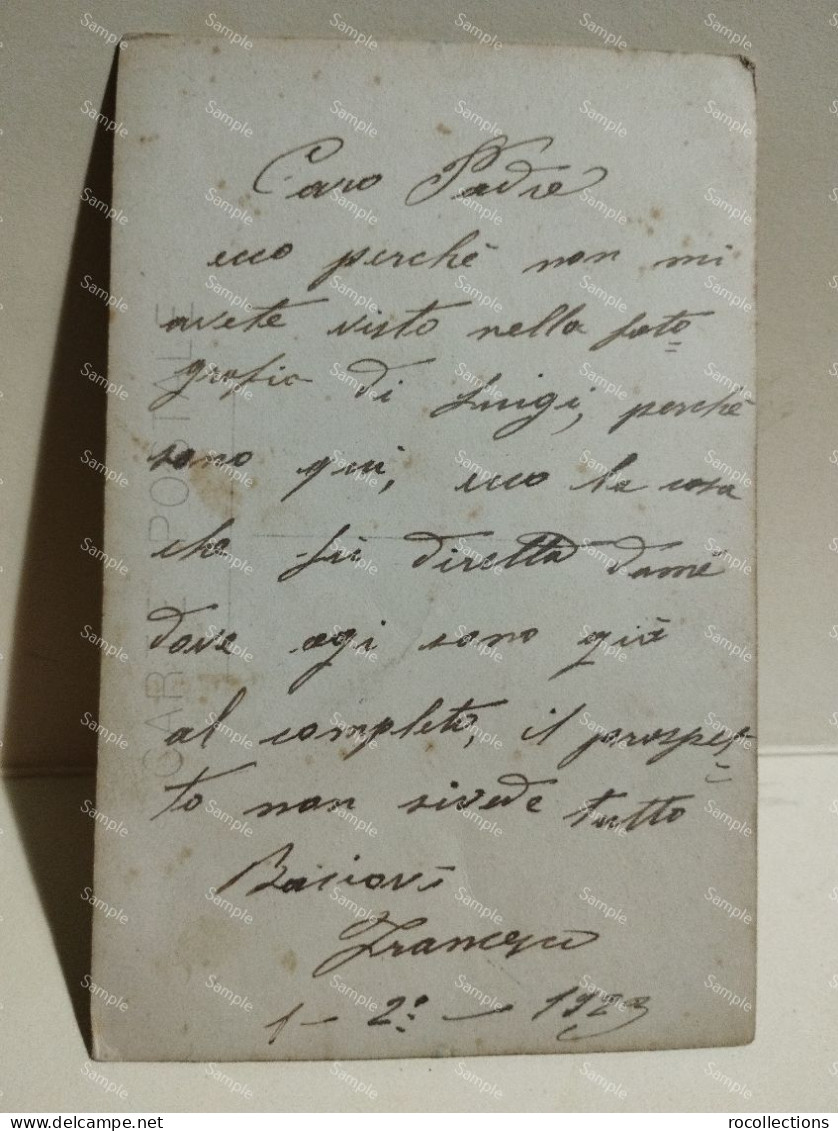 Caro Padre
ecco perchè non mi
avete visto nella foto=
grafia di Luigi, perchè
sono qui, ecco la cosa
che fu diretta damè
dove ogi sono già
al completo, il prospet=
to non sivede tutto
Baciovi
Francesco
1 - 2° - 1923
CARTE POSTALE
rocollections